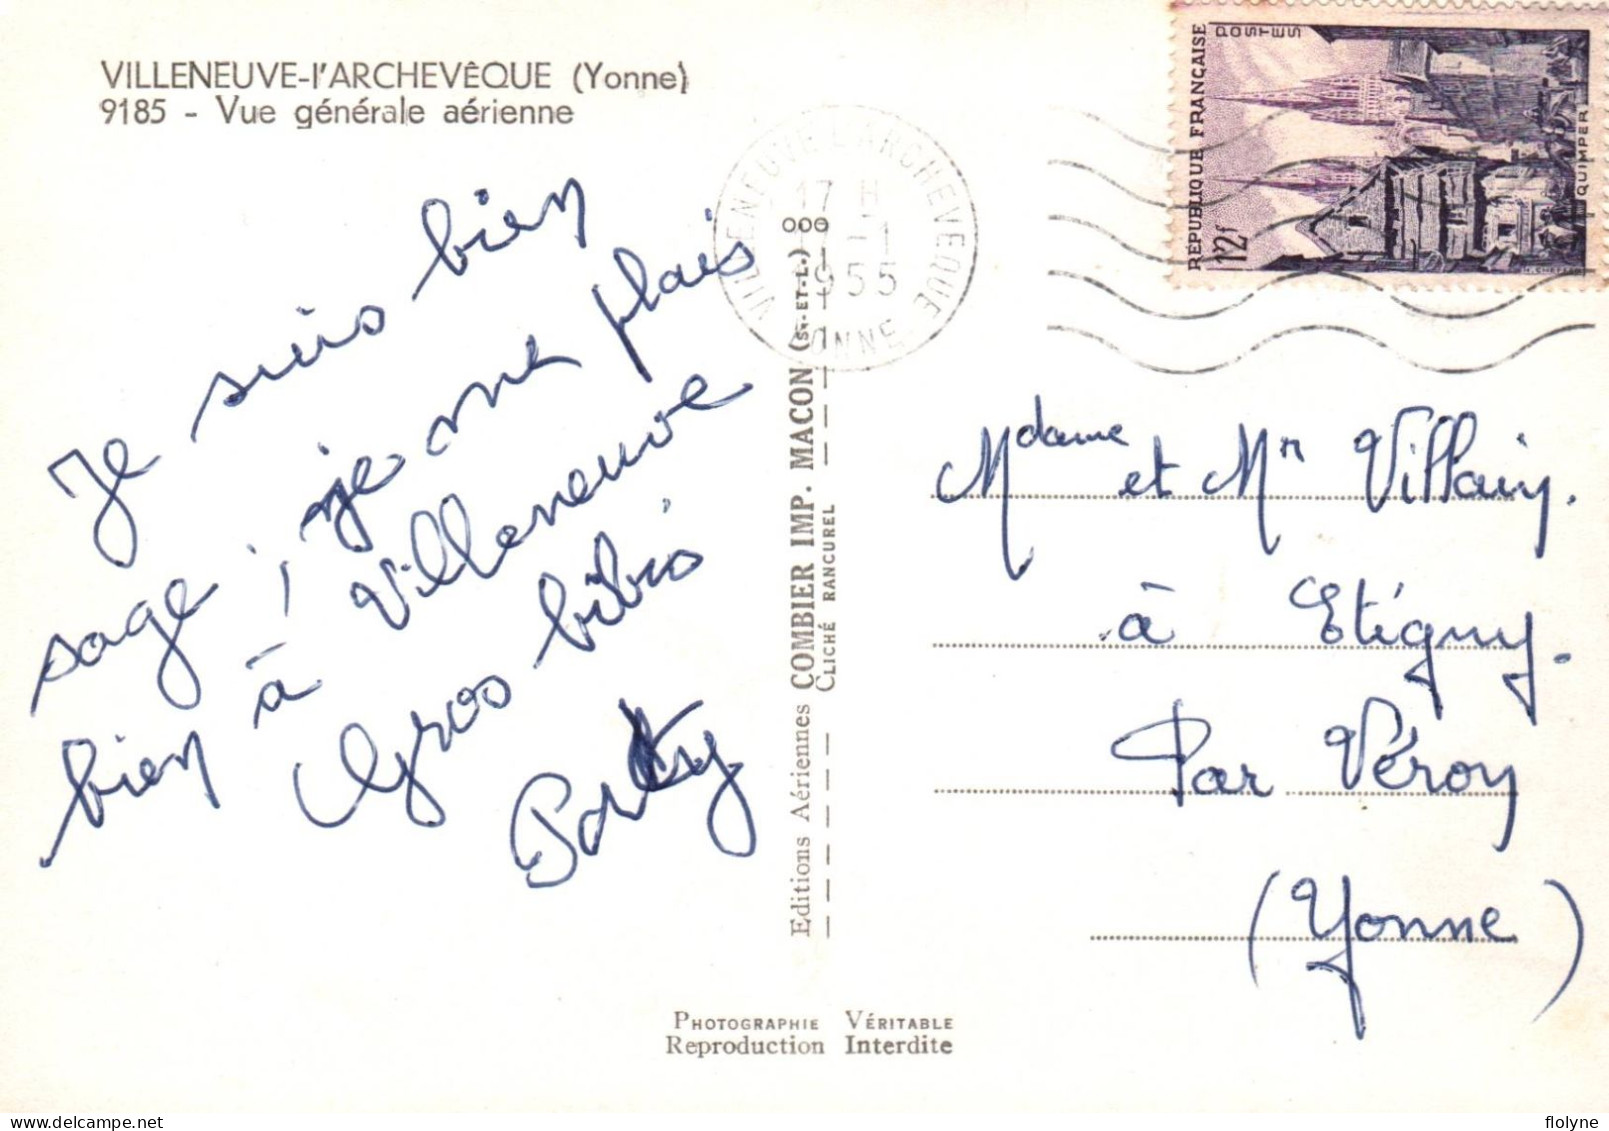 VILLENEUVE-l'ARCHEVÊQUE (Yonne)
9185 - Vue générale aérienne
Je suis bien
sage ; je me plais
bien à Villeneuve
Gros bibis
VILLENEUVE L'ARCHEVEQUE
17 H
17 - 1
1955
YONNE
RÉPUBLIQUE FRANÇAISE
POSTES
12f
QUIMPER
Mdame et Mr Villain.
à Etigny.
Par Véron
(Yonne)
Editions Aériennes COMBIER IMP. MACON (S.-ET-L.)
CLICHÉ RANCUREL
PHOTOGRAPHIE VÉRITABLE
Reproduction Interdite
flolyne